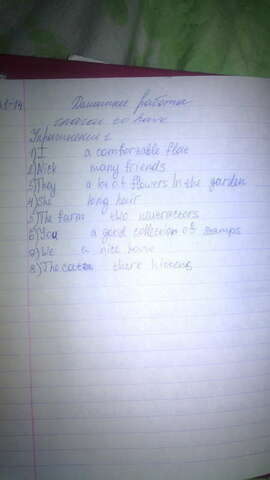 Домашняя работа
глагол to have
Упражнение 1
1) I a comfortable flat
2) Nick many friends
3) They a lot of flowers In the garden
4) She long hair
5) The farm two
6) You a good collection of stamps
7) We a nice
8) The cat there kittens